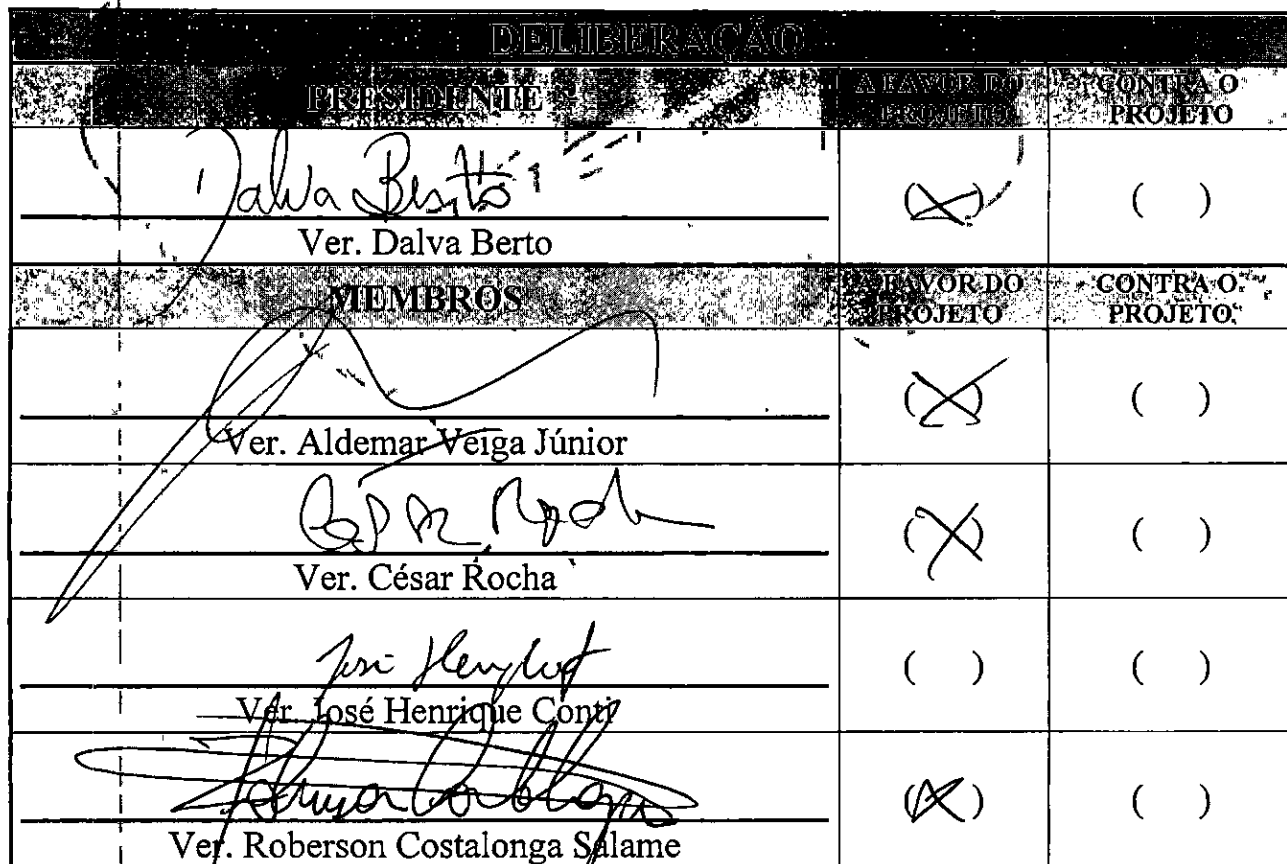 DELIBERAÇÃO
PRESIDENTE A FAVOR DO PROJETO CONTRA O PROJETO
Dalva Berto (X) ( )
Ver. Dalva Berto
MEMBROS A FAVOR DO PROJETO CONTRA O PROJETO
(X) ( )
Ver. Aldemar Veiga Júnior
César Rocha (X) ( )
Ver. César Rocha
José ( ) ( )
Ver. José Henrique Conti
(X) ( )
Ver. Roberson Costalonga Salame